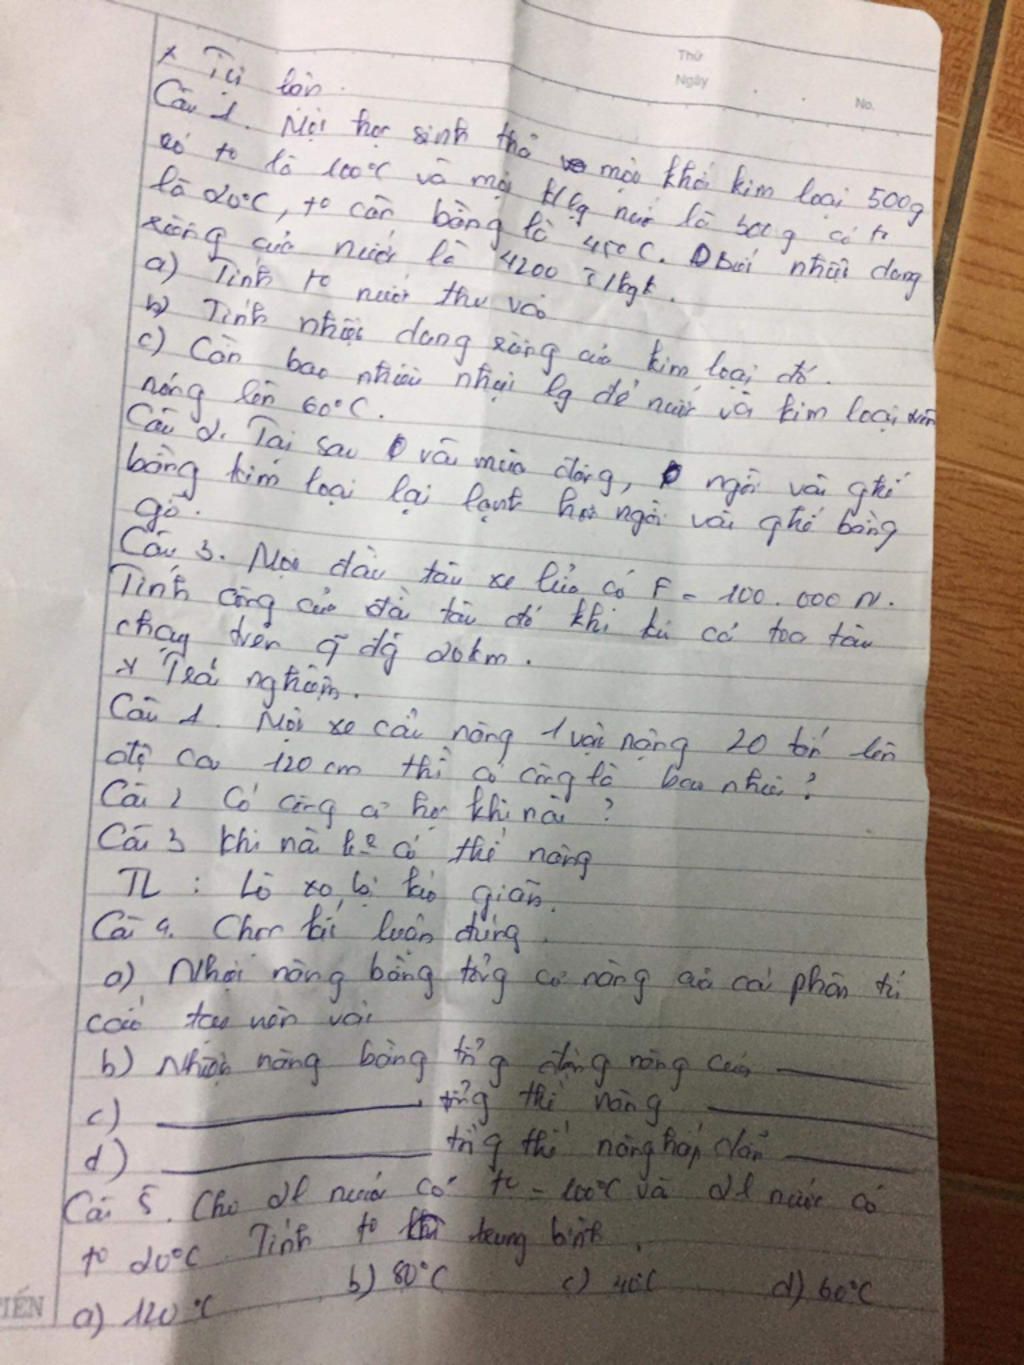 Thứ
Ngày
No.
* Tự luận.
Câu 1. Một học sinh thả một khối kim loại 500g
có to là 100°C và một klg nước là 500g có to
là 20°C, to cân bằng là C. Biết nhiệt dung
riêng của nước là 4200 J/kgk.
a) Tính to nước thu vào
b) Tính nhiệt dung riêng của kim loại đó.
c) Cần bao nhiêu nhiệt lg để nước và kim loại trên
nóng lên 60°C.
Câu 2. Tại sao vào mùa đông, ngồi vài ghế
bằng kim loại lại lạnh hơn ngồi vài ghế bằng
gỗ.
Câu 3. Một đầu tàu xe lửa có F = 100.000 N.
Tính công của đầu tàu đó khi kéo toa tàu
chạy trên q đg 20km.
* Trắc nghiệm.
Câu 1. Một xe cẩu nâng 1 vật nặng 20 tấn lên
độ cao 120 cm thì có công là bao nhiêu?
Câu 2 Có công cơ học khi nào?
Câu 3 khi nào ko có thế năng
TL : Lò xo bị kéo giãn.
Câu 4. Chọn kết luận đúng.
a) Nhiệt năng bằng tổng cơ năng của các phân tử
cấu tạo nên vật
b) Nhiệt năng bằng tổng động năng của
c) tổng thế năng
d) tổng thế năng hấp dẫn
Câu 5. Cho 2l nước có to = 100°C và 2l nước có
to 20°C Tính to trung bình.
a) 120°C b) 80°C c) 40°C d) 60°C
TIẾN